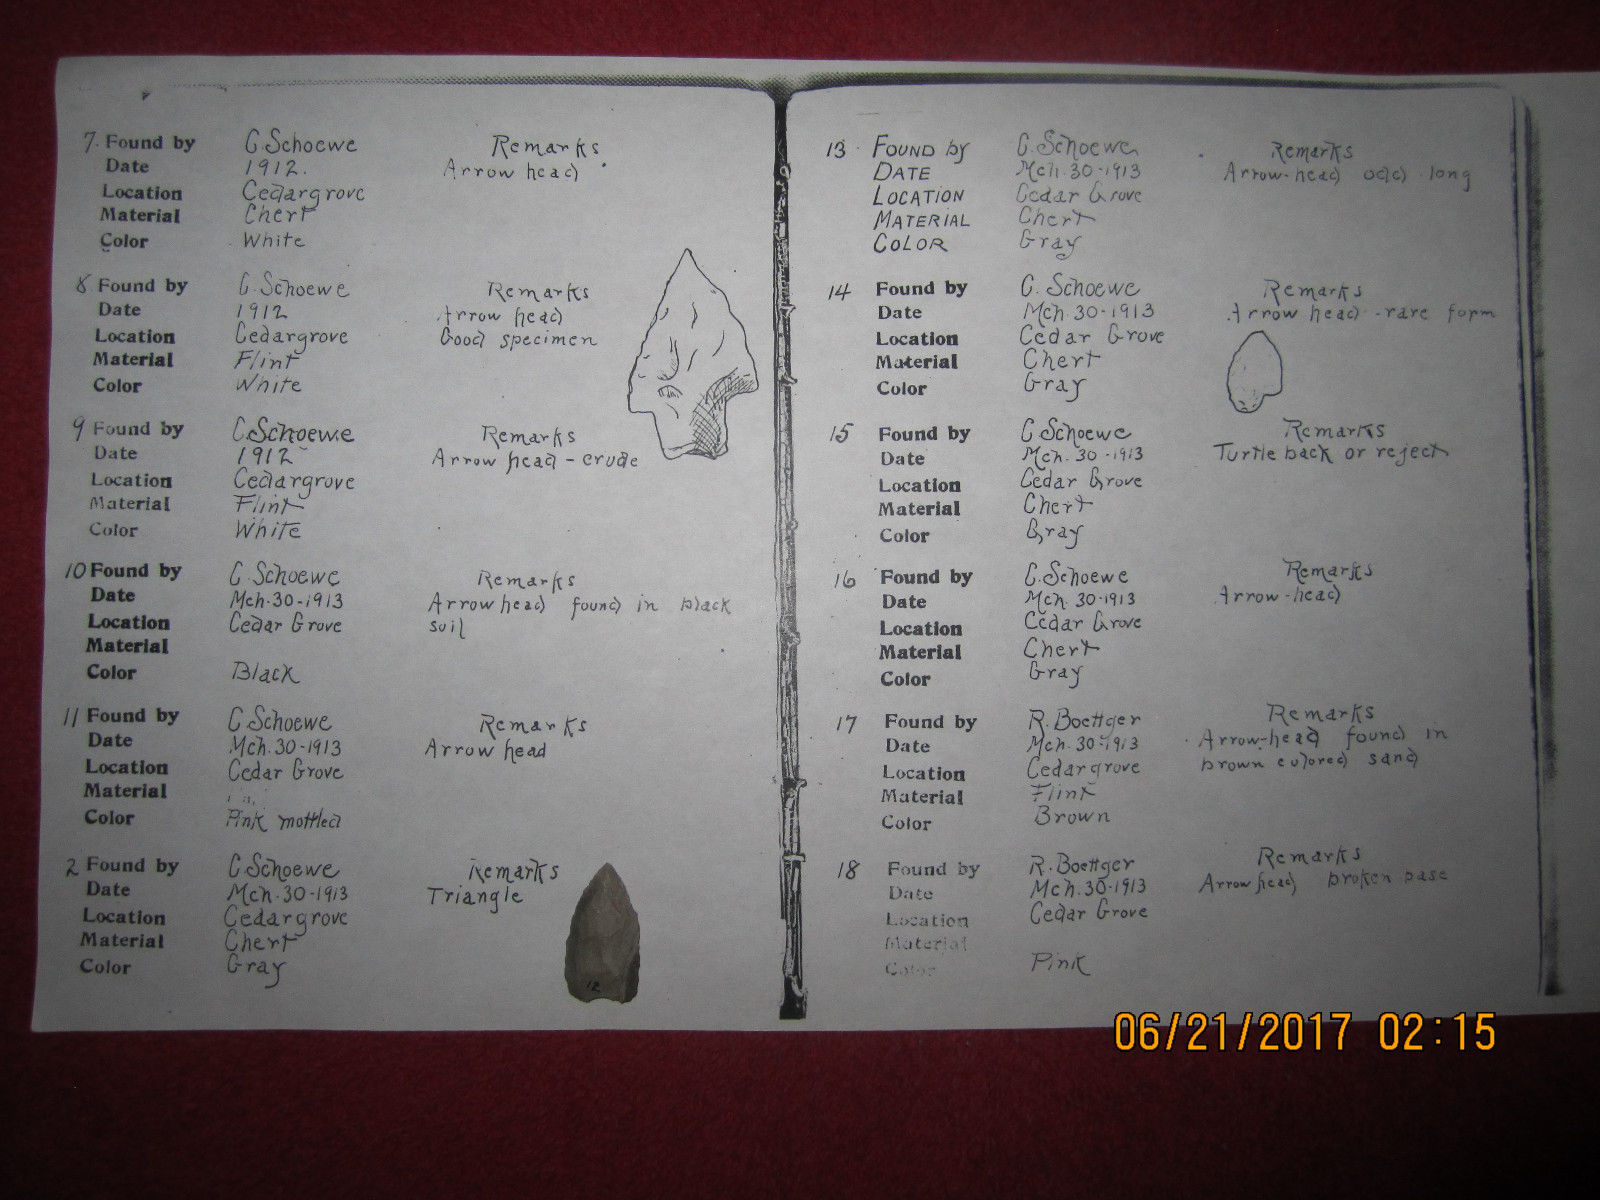 7. Found by C. Schoewe Remarks
Date 1912. Arrow head
Location Cedargrove
Material Chert
Color White
8 Found by C. Schoewe Remarks
Date 1912 Arrow head
Location Cedargrove Good specimen
Material Flint
Color White
9 Found by C. Schoewe Remarks
Date 1912 Arrow head - crude
Location Cedargrove
Material Flint
Color White
10 Found by C. Schoewe Remarks
Date Mch. 30-1913 Arrow head found in black
Location Cedar Grove soil
Material
Color Black
11 Found by C. Schoewe Remarks
Date Mch. 30-1913 Arrow head
Location Cedar Grove
Material
Color Pink mottled
2 Found by C. Schoewe Remarks
Date Mch. 30-1913 Triangle
Location Cedargrove
Material Chert
Color Gray
12
13 FOUND by C. Schoewe Remarks
DATE Mch. 30-1913 Arrow-head odd long
LOCATION Cedar Grove
MATERIAL Chert
COLOR Gray
14 Found by C. Schoewe Remarks
Date Mch. 30-1913 Arrow head - rare form
Location Cedar Grove
Material Chert
Color Gray
15 Found by C. Schoewe Remarks
Date Mch. 30-1913 Turtle back or reject
Location Cedar Grove
Material Chert
Color Gray
16 Found by C. Schoewe Remarks
Date Mch. 30-1913 Arrow-head
Location Cedar Grove
Material Chert
Color Gray
17 Found by R. Boettger Remarks
Date Mch. 30-1913 Arrow-head found in
Location Cedargrove brown colored sand
Material Flint
Color Brown
18 Found by R. Boettger Remarks
Date Mch. 30-1913 Arrow head broken base
Location Cedar Grove
Material
Color Pink
06/21/2017 02:15